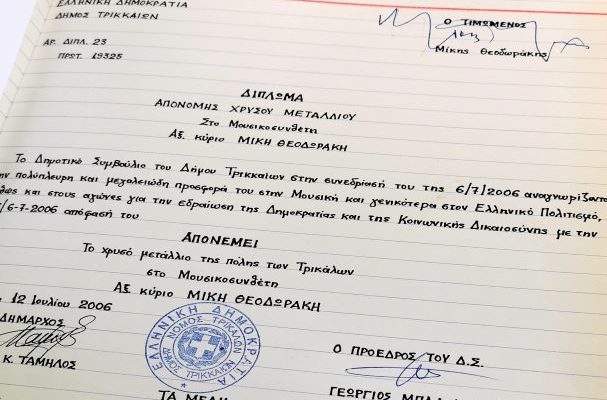 ΕΛΛΗΝΙΚΗ ΔΗΜΟΚΡΑΤΙΑ
ΔΗΜΟΣ ΤΡΙΚΚΑΙΩΝ
Ο ΤΙΜΩΜΕΝΟΣ
Μίκης Θεοδωράκης
ΑΡ. ΔΙΠΛ. 23
ΠΡΩΤ. 19325
ΔΙΠΛΩΜΑ
ΑΠΟΝΟΜΗΣ ΧΡΥΣΟΥ ΜΕΤΑΛΛΙΟΥ
Στο Μουσικοσυνθέτη
Αξ. κύριο ΜΙΚΗ ΘΕΟΔΩΡΑΚΗ
Το Δημοτικό Συμβούλιο του Δήμου Τρικκαίων στην συνεδρίασή του της 6/7/2006 αναγνωρίζοντα
ην πολύπλευρη και μεγαλειώδη προσφορά του στην Μουσική και γενικότερα στον Ελληνικό Πολιτισμό,
θώς και στους αγώνες για την εδραίωση της Δημοκρατίας και της Κοινωνικής Δικαιοσύνης με την
/6-7-2006 απόφασή του
ΑΠΟΝΕΜΕΙ
Το χρυσό μετάλλιο της πόλης των Τρικάλων
στο Μουσικοσυνθέτη
Αξ. κύριο ΜΙΚΗ ΘΕΟΔΩΡΑΚΗ
12 Ιουλίου 2006
ΔΗΜΑΡΧΟΣ
Κ. ΤΑΜΗΛΟΣ
ΕΛΛΗΝΙΚΗ ΔΗΜΟΚΡΑΤΙΑ
ΝΟΜΟΣ ΤΡΙΚΑΛΩΝ
ΔΗΜΟΣ ΤΡΙΚΚΑΙΩΝ
Ο ΠΡΟΕΔΡΟΣ ΤΟΥ Δ.Σ.
ΓΕΩΡΓΙΟΣ
ΤΑ ΜΕΛΗ